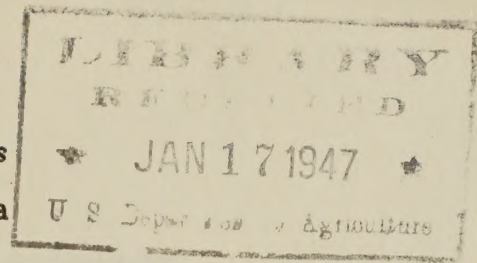 LIBRARY
RECEIVED
s
★ JAN 17 1947 ★
a
U S Department of Agriculture